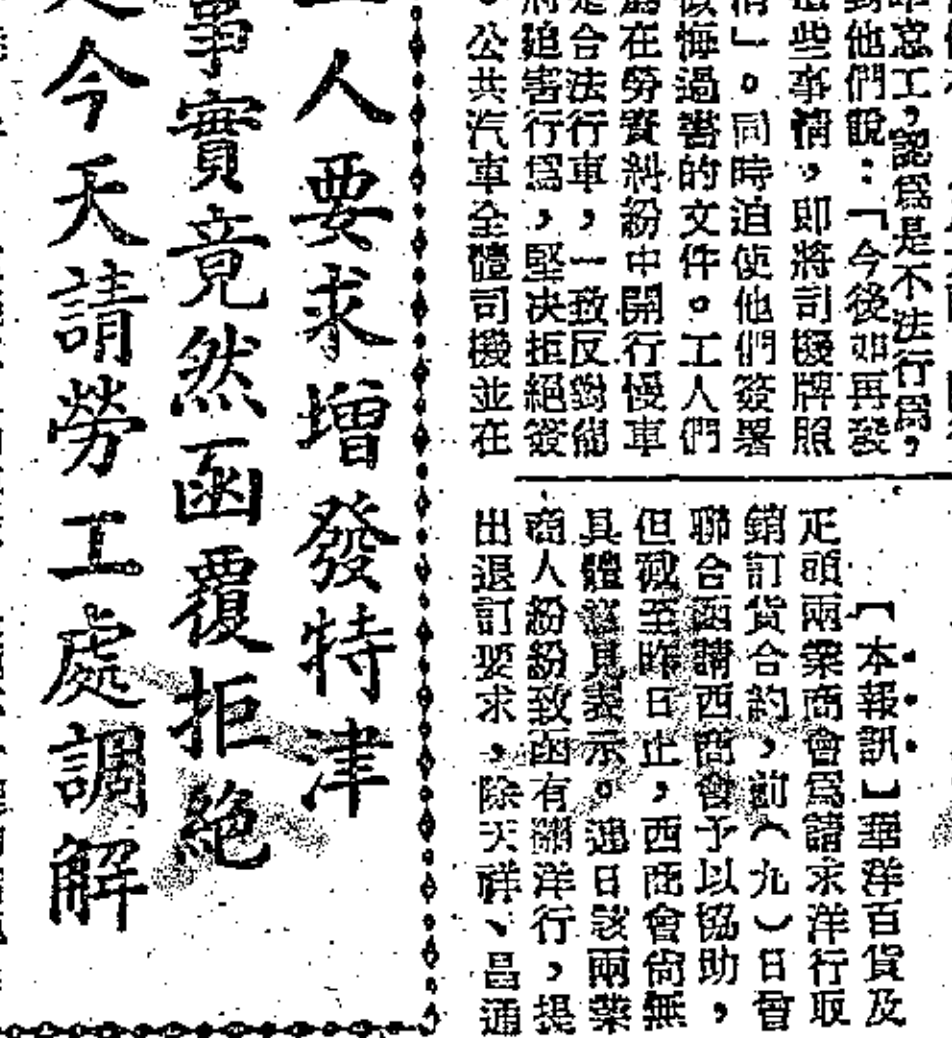 怠工,認爲是不法行爲,
對他們說:「今後如再發
這些事情,即將司機牌照
消」。同時迫使他們簽署
悔過書的文件。工人們
爲在勞資糾紛中開行慢車
是合法行車,一致反對
迫害行爲,堅決拒絕簽
。公共汽車全體司機並在
【本報訊】華洋百貨及
疋頭兩業商會爲請求洋行取
銷訂貨合約,前(九)日曾
聯合函請西商會予以協助,
但截至昨日止,西商會尙無
具體意見表示。連日該兩業
商人紛紛致函有關洋行,提
出退訂要求,除天祥、昌通
人要求增發特津
事實竟然函覆拒絕
今天請勞工處調解